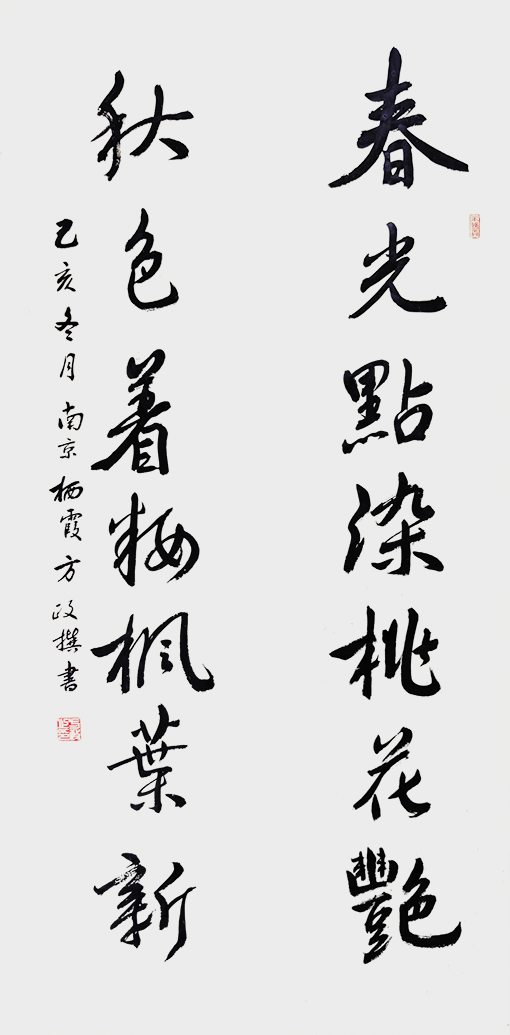 春光點染桃花豔
秋色着粧楓葉新
乙亥冬月南京栖霞方政撰書